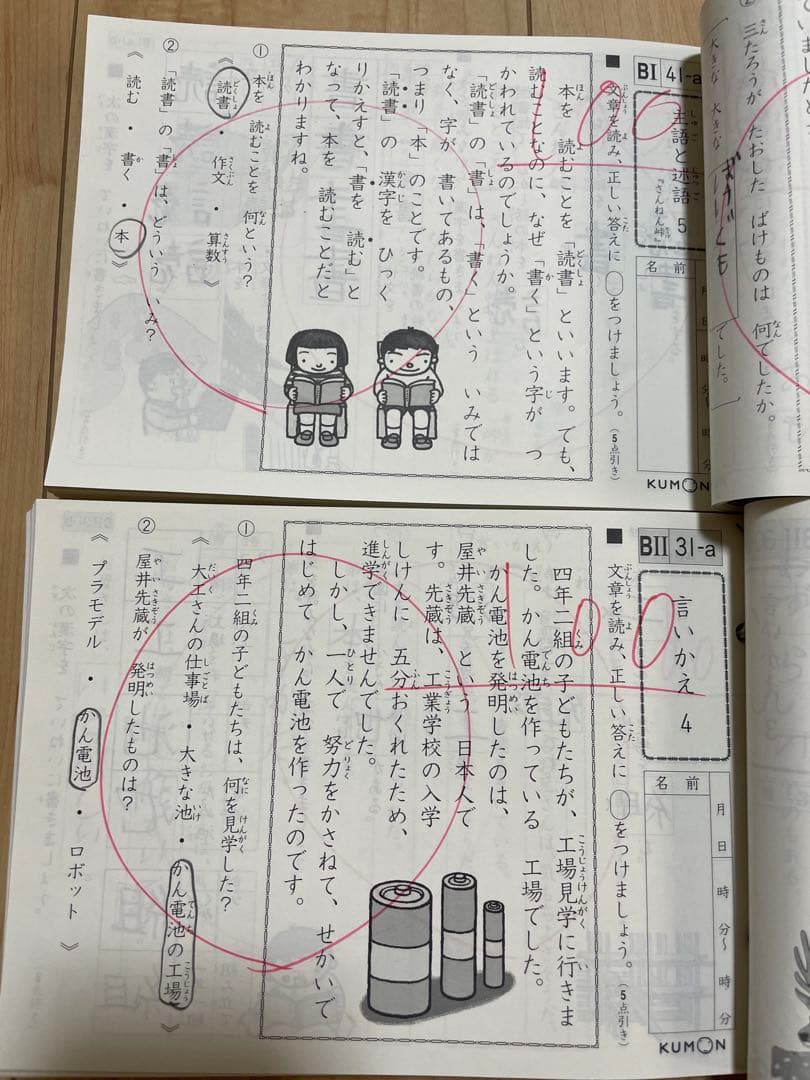 BI 41-a
主語と述語 5
『さんねん峠』
名前
月 日 時 分〜 時 分
■ 文章を読み、正しい答えに ◯をつけましょう。(5点引き)
100
本を 読むことを「読書」といいます。でも、
読むことなのに、なぜ「書く」という字が つ
かわれているのでしょうか。
「読書」の「書」は、「書く」という いみでは
なく、字が 書いてあるもの、
つまり「本」のことです。
「読書」の 漢字を ひっく
りかえすと、「書を 読む」と
なって、本を 読むことだと
わかりますね。
① 本を 読むことを 何という?
《 読書 ・ 作文 ・ 算数 》
② 「読書」の「書」は、どういう いみ?
《 読む ・ 書く ・ 本 》
KUMON
三だろうが たおした ばけものは 何でしたか。
大きな 大きな
でした。
BII 31-a
言いかえ 4
名前
月 日 時 分〜 時 分
■ 文章を読み、正しい答えに ◯をつけましょう。(5点引き)
100
四年二組の子どもたちが、工場見学に行きま
した。かん電池を作っている 工場でした。
かん電池を発明したのは、
屋井先蔵 という 日本人で
す。先蔵は、工業学校の入学
しけんに 五分おくれたため、
進学できませんでした。
しかし、一人で 努力をかさねて、せかいで
はじめて かん電池を作ったのです。
① 四年二組の子どもたちは、何を見学した?
《 大工さんの仕事場 ・ 大きな池 ・ かん電池の工場 》
② 屋井先蔵が 発明したものは?
《 プラモデル ・ かん電池 ・ ロボット 》
KUMON